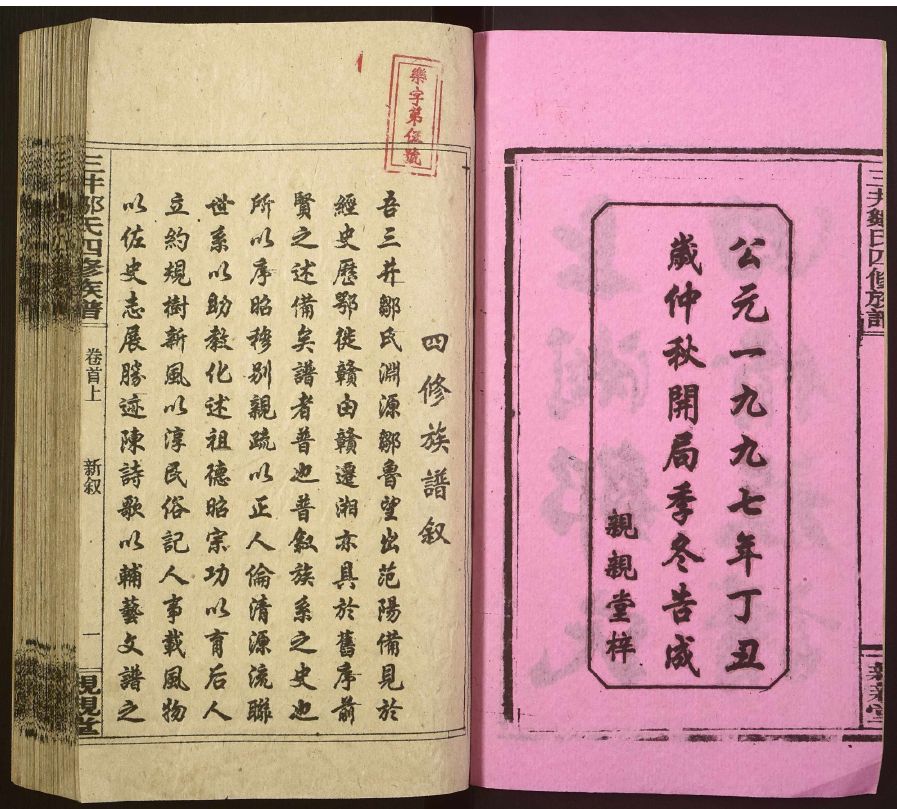 公元一九九七年丁丑
歲仲秋開局季冬告成
親親堂梓
樂字第伍號
四修族譜叙
吾三井鄒氏淵源鄒魯望出范陽備見於
經史歷鄂徙贛由贛遷湘亦具於舊序前
賢之述備矣譜者普也普叙族系之史也
所以序昭穆别親疏以正人倫清源流聯
世系以助教化述祖德昭宗功以育后人
立約規樹新風以淳民俗記人事載風物
以佐史志展勝迹陳詩歌以輔藝文譜之
三井鄒氏四修族譜
卷首上
新叙
一
親親堂